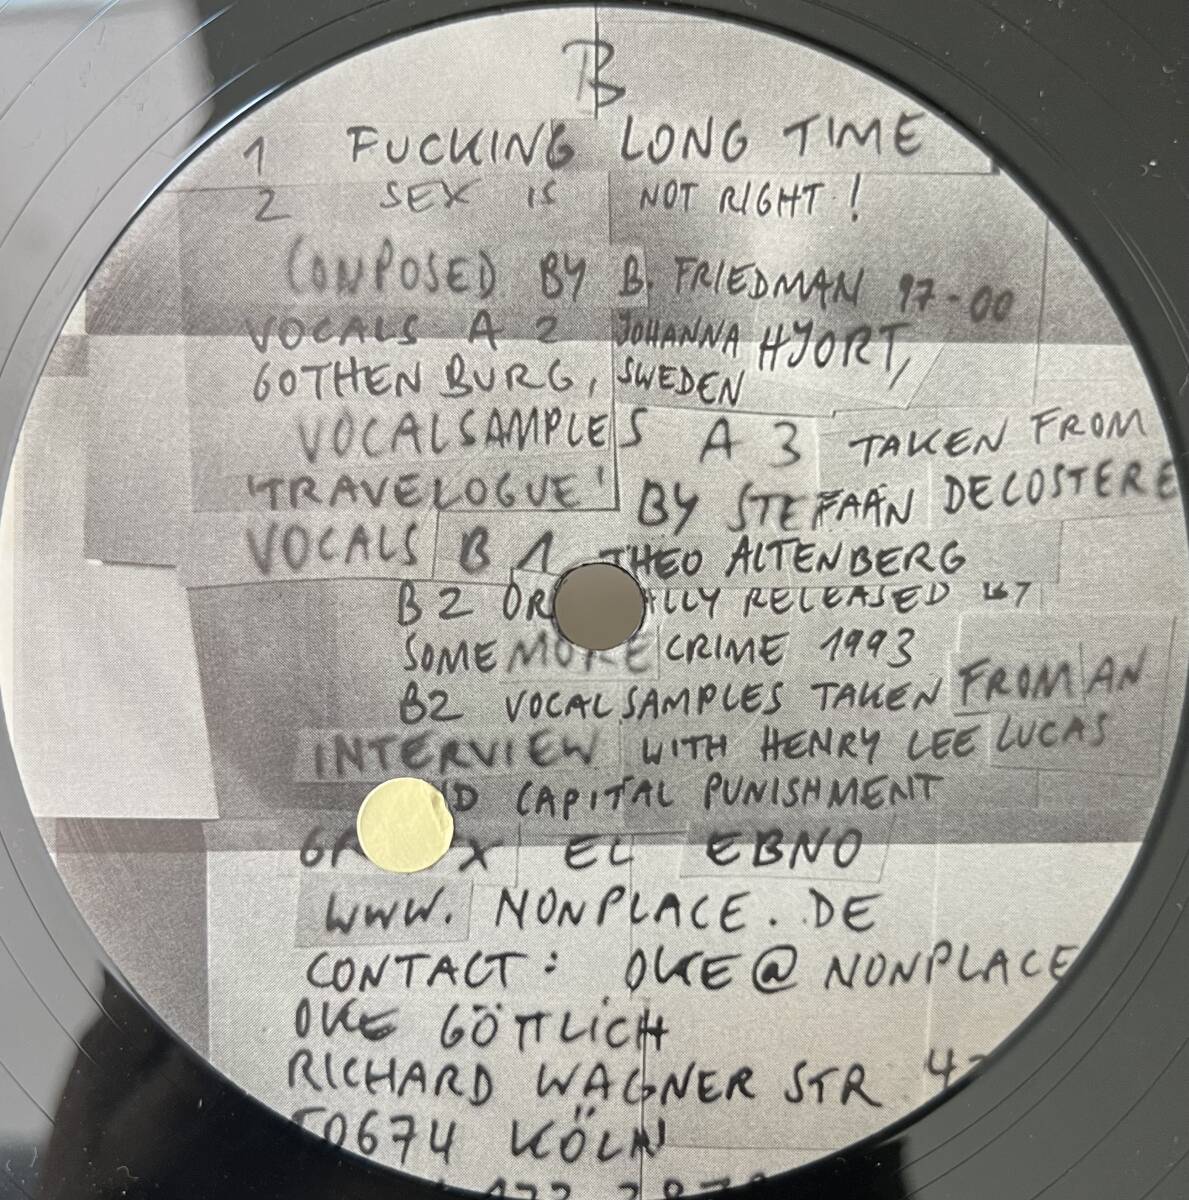 B
1 FUCKING LONG TIME
2 SEX IS NOT RIGHT!
COMPOSED BY B. FRIEDMAN 97-00
VOCALS A 2 JOHANNA HJORT,
GOTHENBURG, SWEDEN
VOCALSAMPLES A 3 TAKEN FROM
'TRAVELOGUE' BY STEFAAN DECOSTERE
VOCALS B 1 THEO ALTENBERG
B2 RELEASED
SOME MORE CRIME 1993
B2 VOCALSAMPLES TAKEN FROM AN
INTERVIEW WITH HENRY LEE LUCAS
CAPITAL PUNISHMENT
EL EBNO
WWW. NONPLACE. DE
CONTACT: OKE@NONPLACE
OKE GÖTTLICH
RICHARD WAGNER STR
50674 KÖLN